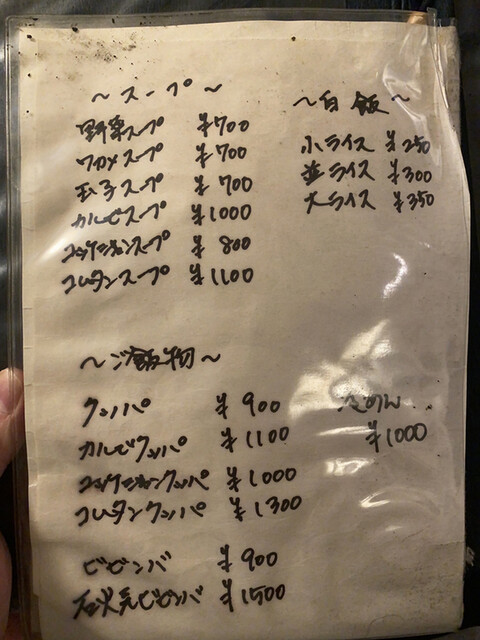 ～スープ～
野菜スープ ¥700
ワカメスープ ¥700
玉子スープ ¥700
カルビスープ ¥1000
ユッケジャンスープ ¥800
コムタンスープ ¥1100
～白飯～
小ライス ¥250
並ライス ¥300
大ライス ¥350
～ご飯物～
クッパ ¥900
カルビクッパ ¥1100
ユッケジャンクッパ ¥1000
コムタンクッパ ¥1300
ビビンバ ¥900
石焼ビビンバ ¥1500
冷めん
¥1000